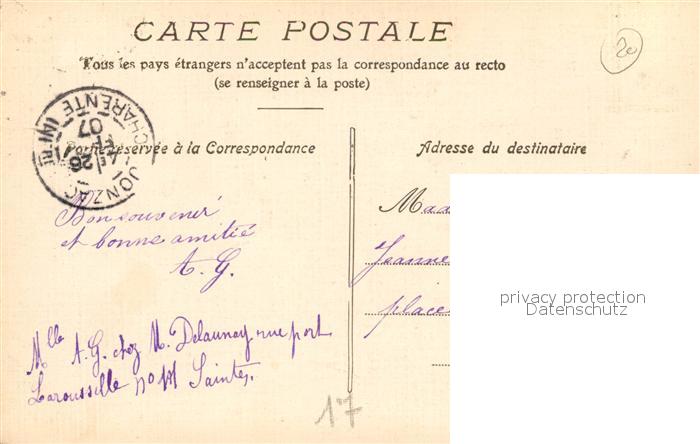 CARTE POSTALE
Tous les pays étrangers n'acceptent pas la correspondance au recto
(se renseigner à la poste)
2e
JONZAC CHARENTE INFRE
26
07
Partie réservée à la Correspondance
Adresse du destinataire
Bon souvenir
et bonne amitié
A. G.
Jeanne
place
Mlle A. G. chez M. Delaunay rue port
Larousselle no Saintes.
17
privacy protection
Datenschutz